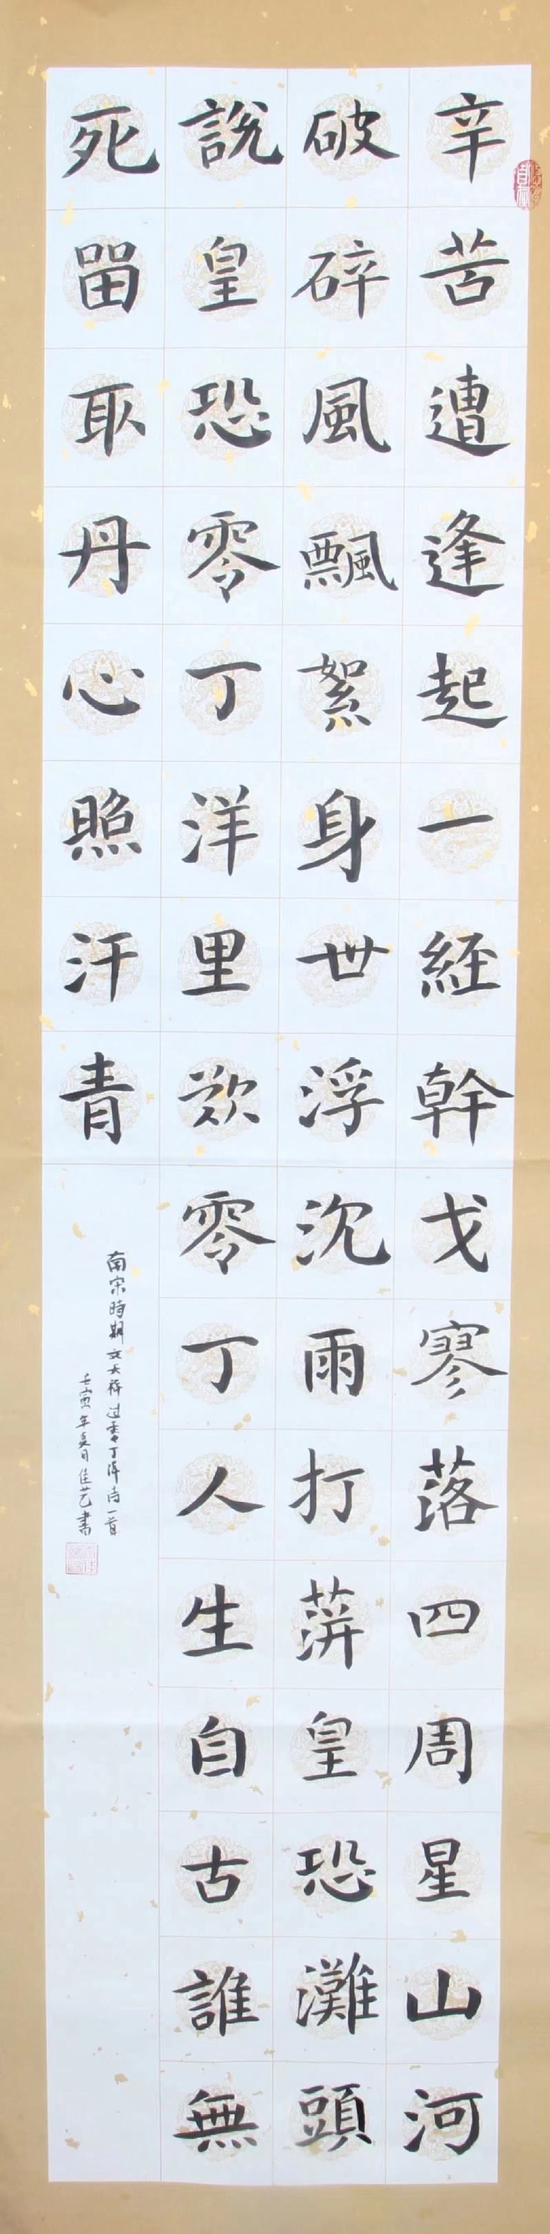 辛苦遭逢起一經幹戈寥落四周星山河
破碎風飄絮身世浮沉雨打萍皇恐灘頭
說皇恐零丁洋里歎零丁人生自古誰無
死留取丹心照汗青
南宋時期文天祥过零丁洋诗一首
壬寅年夏月佳艺書